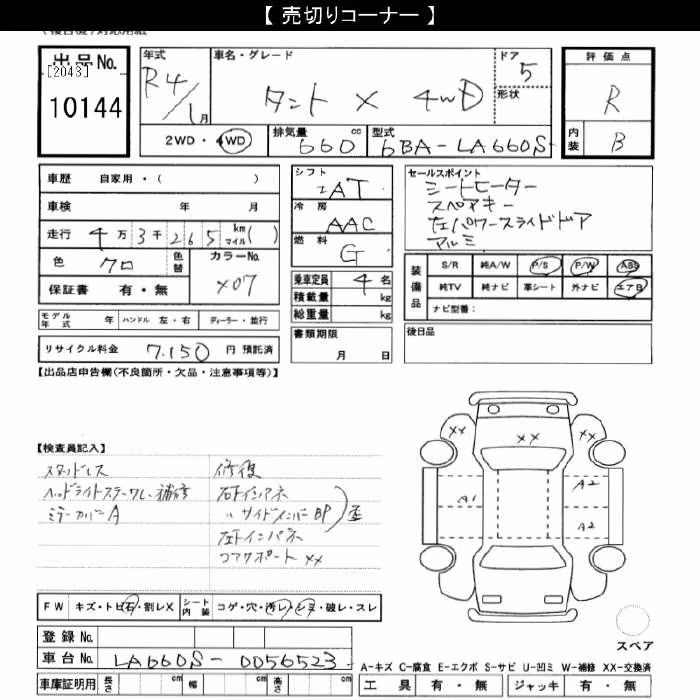 【 売切りコーナー 】
出品No.
[2043]
10144
年式
R4/1月
車名・グレード
タント X 4WD
ドア
5
形状
評価点
R
内装
B
2WD・4WD
排気量
660 cc
型式
6BA-LA660S
車歴 自家用・( )
車検 年 月
走行 4万3千265 km マイル( )
色 クロ
色替
カラーNo.
X07
保証書 有・無
シフト
IAT
冷房
AAC
燃料
G
乗車定員 4名
積載量 kg
総重量 kg
セールスポイント
シートヒーター
スペアキー
左パワースライドドア
アルミ
装備品
S/R 純A/W P/S P/W ABS
純TV 純ナビ 革シート 外ナビ エアB
ナビ型番:
モデル年式 年 ハンドル 左・右 ディーラー・並行
書類期限
月 日
後日品
リサイクル料金 7,150 円 預託済
【出品店申告欄(不良箇所・欠品・注意事項等)】
【検査員記入】
スタッドレス
ヘッドライトステーワレ・補修
ミラーカバーA
修復
右Fインアネ
〃サイドメンバーBP
歪
左Fインパネ
コアサポートXX
XX
XX
XX
A1
A2
A2
FW キズ・トビ石・割レX
シート内装 コゲ・穴・汚レ・シミ・破レ・スレ
スペア
登録No.
車台No. LA660S-0056523
車庫証明用 長さ cm 幅 cm 高さ cm
A-キズ C-腐食 E-エクボ S-サビ U-凹ミ W-補修 XX-交換済
工具 有・無 ジャッキ 有・無